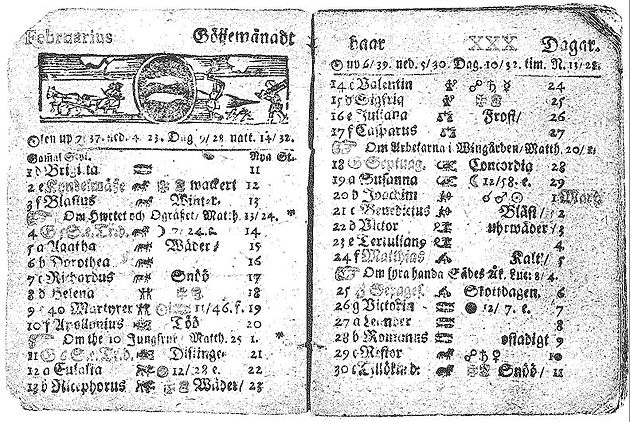 Februarius Götjemånadt
Gamal Styl. Nya St.
1 d Brigitta 11
2 e Kyndelmässe wackert 12
3 f Blasius Winter 13
Om Hwetet och Ogräset/ Matth. 13/24.
4 G 5 e. Tr. d. 7/24. e. 14
5 a Agatha Wäder 15
6 b Dorothea 16
7 c Richardus Snöö 17
8 d Helena 18
9 e 40 Martyrer 11/46. f. 19
10 f Apollonius Töö 20
Om the 10 Jungfrur/ Matth. 25
11 G 21
12 a Eulalia 12/28 e. 22
13 b Nicephorus Wäder/ 23
haar XXX Dagar.
up 6/39. ned. 5/30. Dag. 10/32. tim. N. 13/28.
14 c Valentin ☍ ♄ ☿ 24
15 d Sigfrid 25
16 e Juliana Frost/ 26
17 f Casparus 27
Om Arbetarna i Wingården/ Matth. 20/
18 G Septuag. Concordia 28
19 a Susanna ☾ 12/58. e. 29
20 b Joachim ☍ ♂ ☉ 1 Mart.
21 c Benedictus Blåst/ 2
22 d Victor uhrwäder/ 3
23 e 4
24 f Matthias Kalt/ 5
Om fyrahanda Sädes Åk. Luc. 8/4.
25 G Sexages. Skottdagen. 6
26 g Victorin 12/7. e. 7
27 a Leander 8
28 b Romanus ostadigt 9
29 c Nestor ☍ ♄ ♀ 10
30 c Tillökind. Snöö/ 11